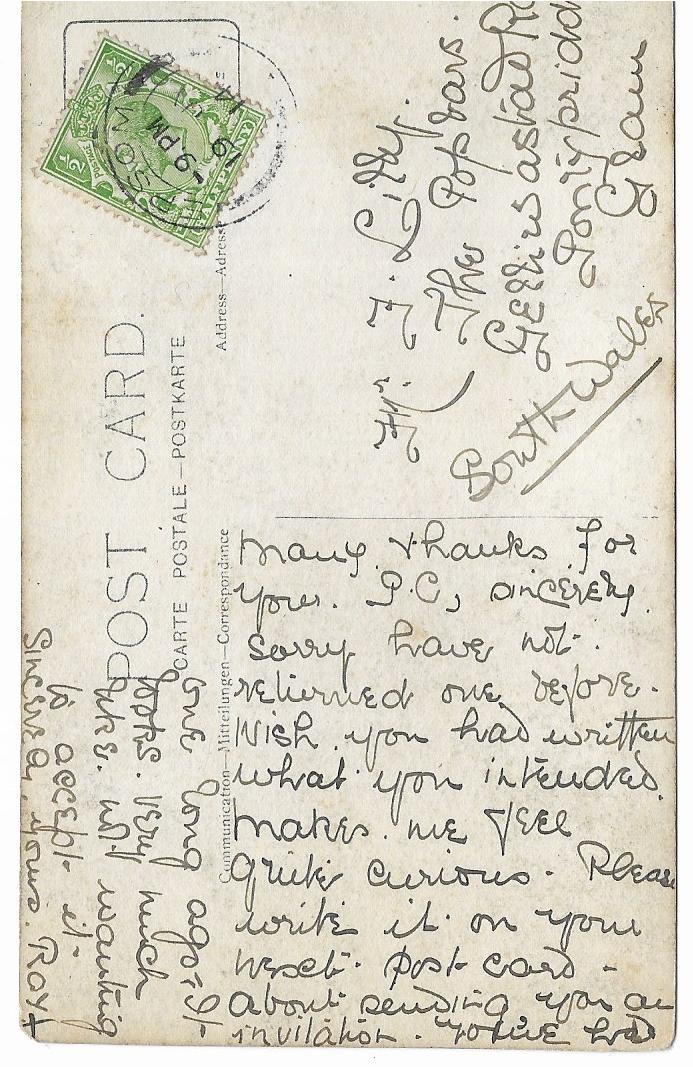 POST CARD.
CARTE POSTALE—POSTKARTE
Address—Adresse
Communication—Mitteilungen—Correspondance
POSTAGE
HALFPENNY
9 PM
19
14
Mr. F. Lilly.
The Poplars.
Gelliwastad R
Pontyprid
Glam
South Wales
Many thanks for
your. P.C, sincerely.
sorry have not.
returned one before.
Wish you had written
what you intended.
makes. me feel
quite curious. Please
write it on your
next. post card -
about sending you an
invitation. You've had
one long ago. It
looks. very much
like. not wanting
to accept it.
Sincerely. yours. Ray x